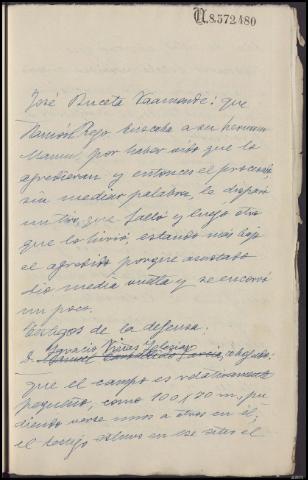 U.8572480
José Buceta Vaamonde: que
Ramón Rejo buscaba a su herman
Manuel por haber oido que lo
agredieran y entonces el procesado
sin mediar palabra, le disparó
un tiro, que falló y luego otro
que lo hirió, estando más bajo
el agredido porque asustado
dio media vuelta y se encorvó
un poco.
Testigos de la defensa:
Ignacio Viñas Iglesias
D.
que el campo es relativamente
pequeño, como 100 x 20 m, pu
diendo verse unos a otros en él;
el torrejo en ese sitio el